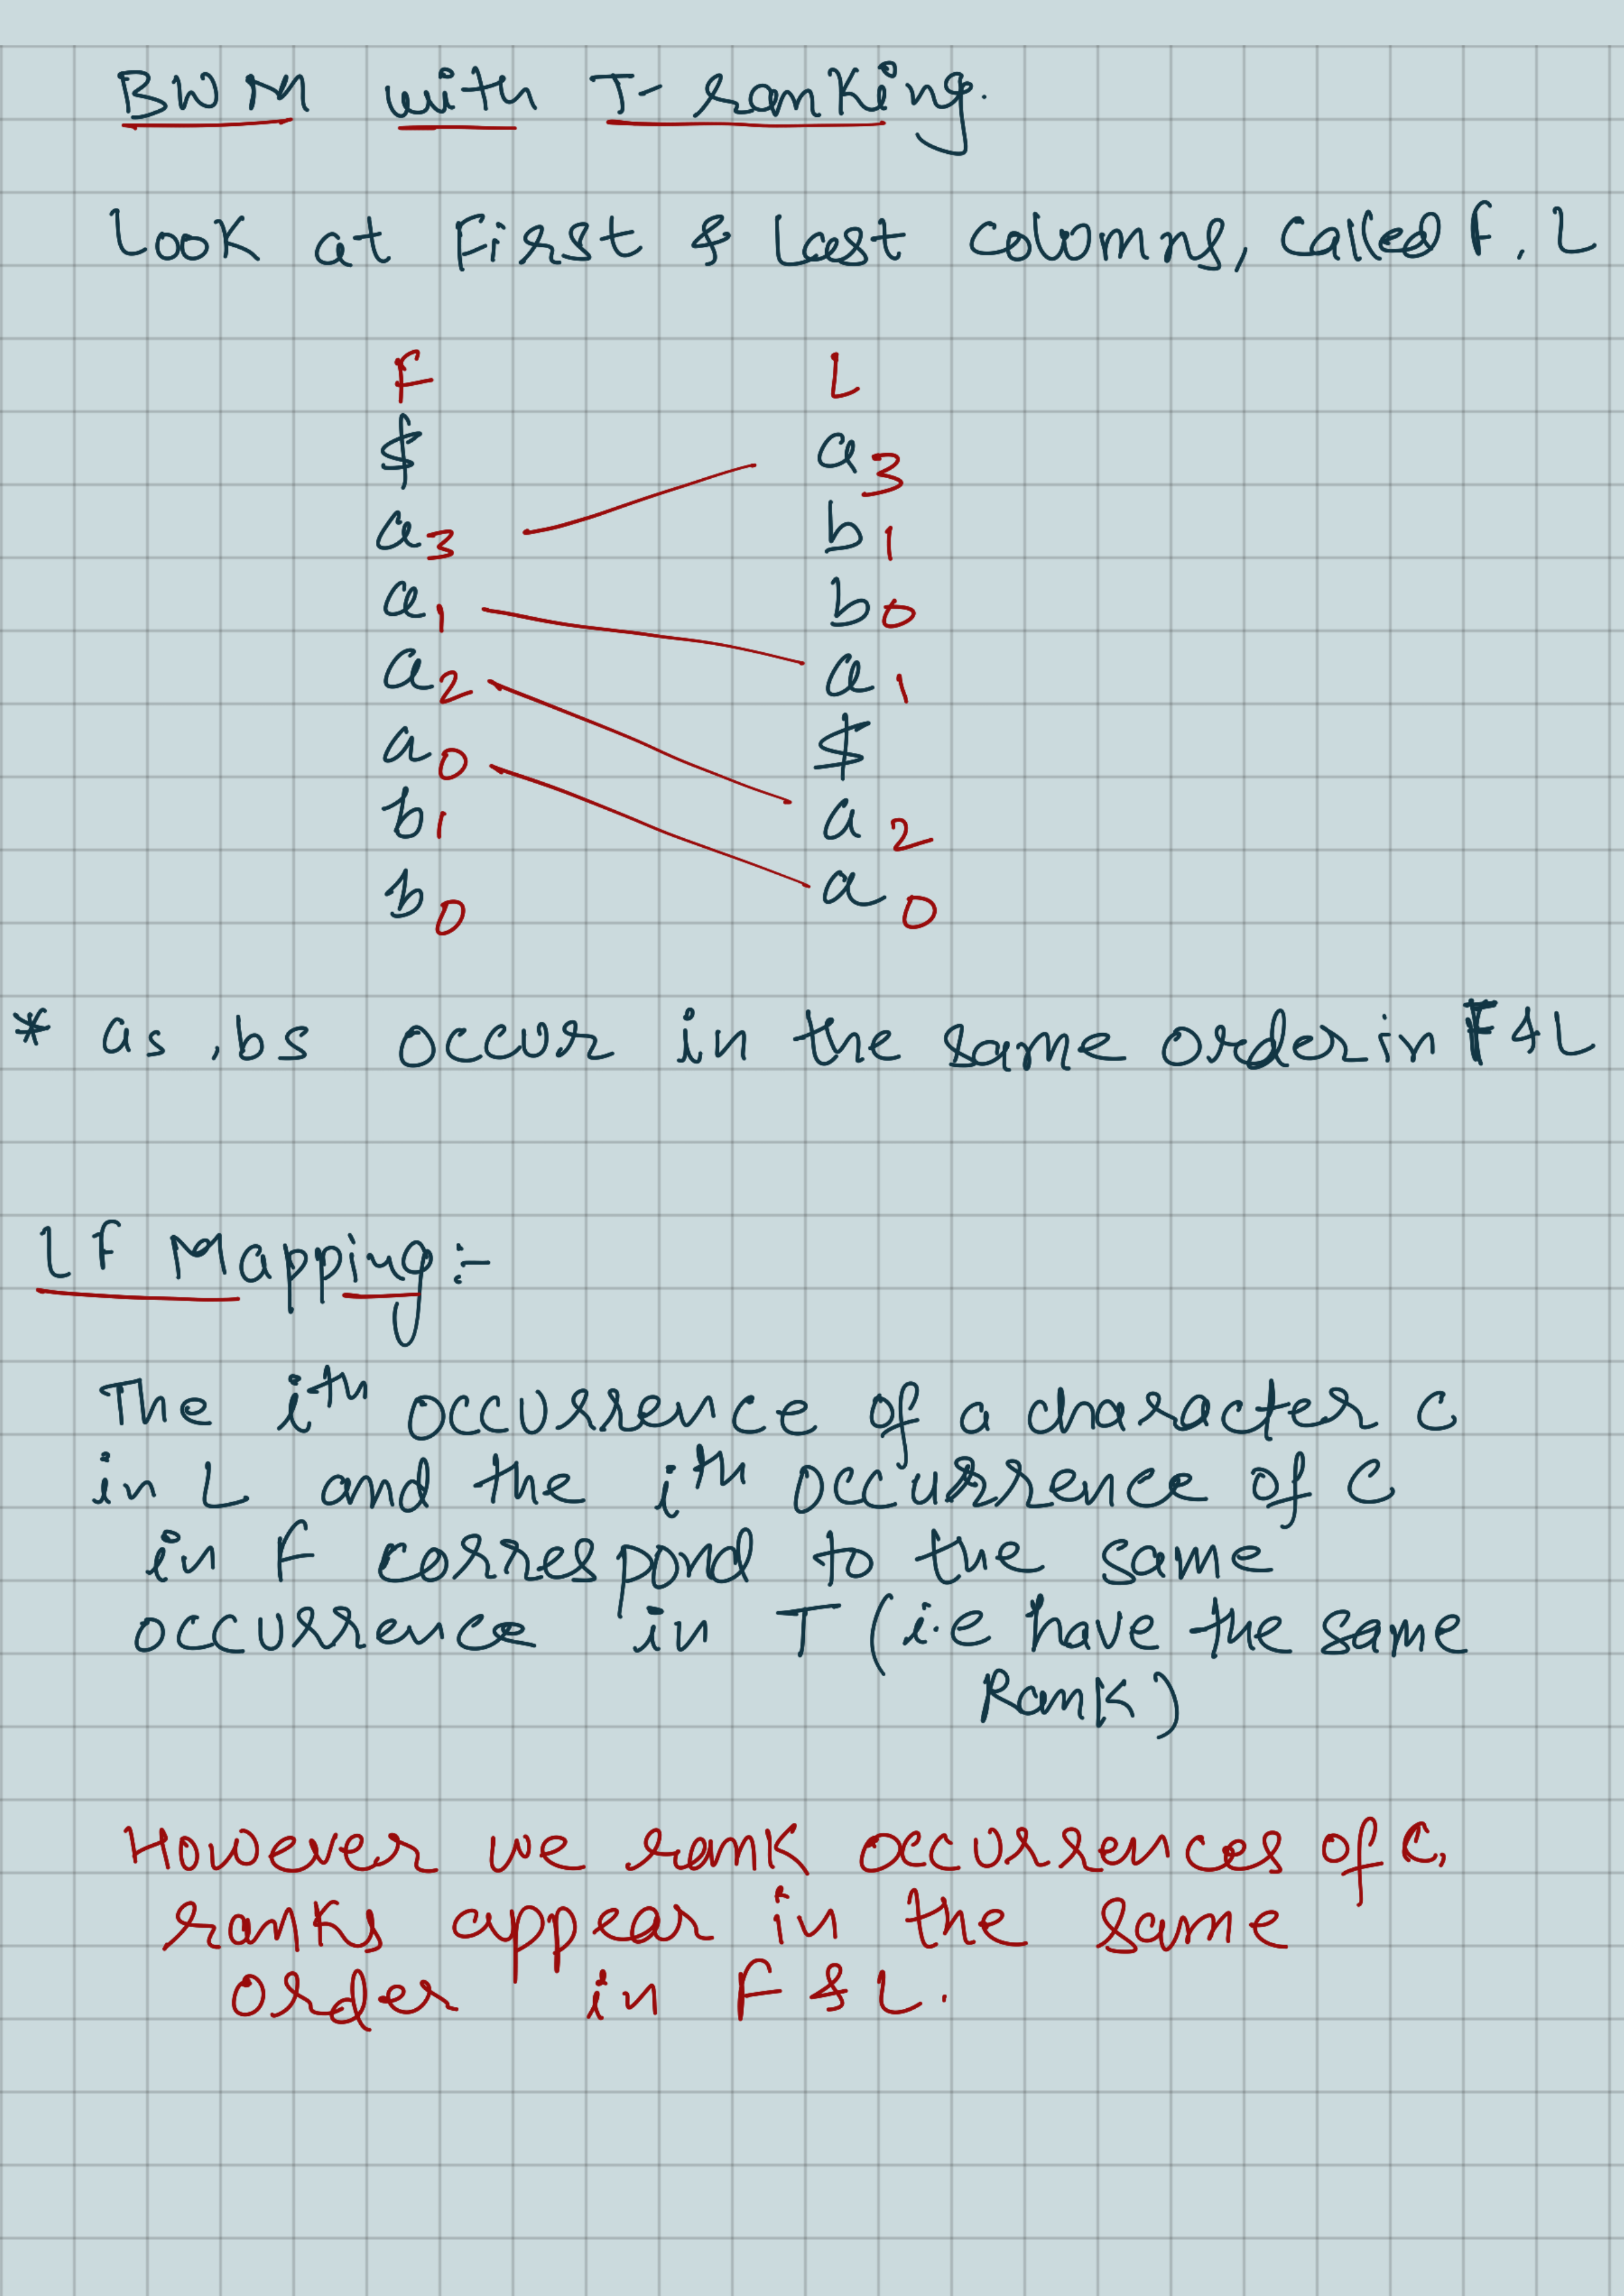 BWM with T-ranking.
Look at First & Last columns, called F, L
F L
$ a3
a3 b1
a1 b0
a2 a1
a0 $
b1 a2
b0 a0
* as, bs occur in the same order in F & L
LF Mapping:-
The ith occurrence of a character c
in L and the ith occurrence of c
in F correspond to the same
occurrence in T (i.e have the same
Rank)
However we rank occurrences of c,
ranks appear in the same
order in F & L.